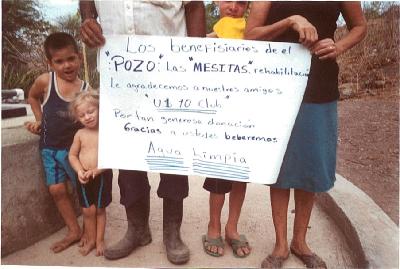 Los beneficiarios de el
"POZO": Las "MESITAS". rehabilitacion
Le agradecemos a nuestros amigos
"U$ 10 Club"
Por tan generosa donación
Gracias a ustedes beberemos
Agua Limpia